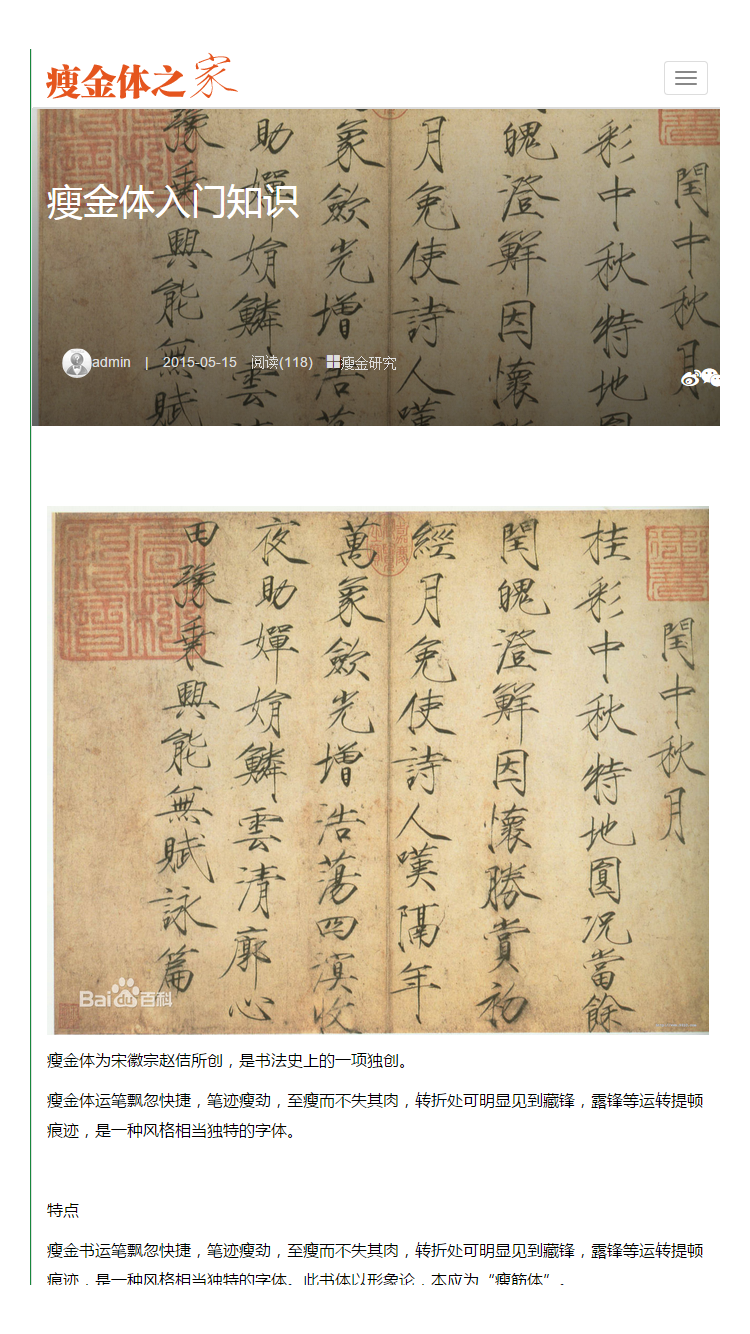 瘦金体之家
瘦金体入门知识
admin | 2015-05-15 阅读(118) 瘦金研究
閏中秋月
桂彩中秋特地圓况當餘
閏魄澄鮮因懷勝賞初
經月免使詩人嘆隔年
萬象歛光增浩蕩四溟收
夜助嬋娟鱗雲清廓心
田豫乗興能無賦詠篇
Baidu百科
瘦金体为宋徽宗赵佶所创，是书法史上的一项独创。
瘦金体运笔飘忽快捷，笔迹瘦劲，至瘦而不失其肉，转折处可明显见到藏锋，露锋等运转提顿
痕迹，是一种风格相当独特的字体。
特点
瘦金书运笔飘忽快捷，笔迹瘦劲，至瘦而不失其肉，转折处可明显见到藏锋，露锋等运转提顿
痕迹，是一种风格相当独特的字体。此书体以形象论，本应为“瘦筋体”。